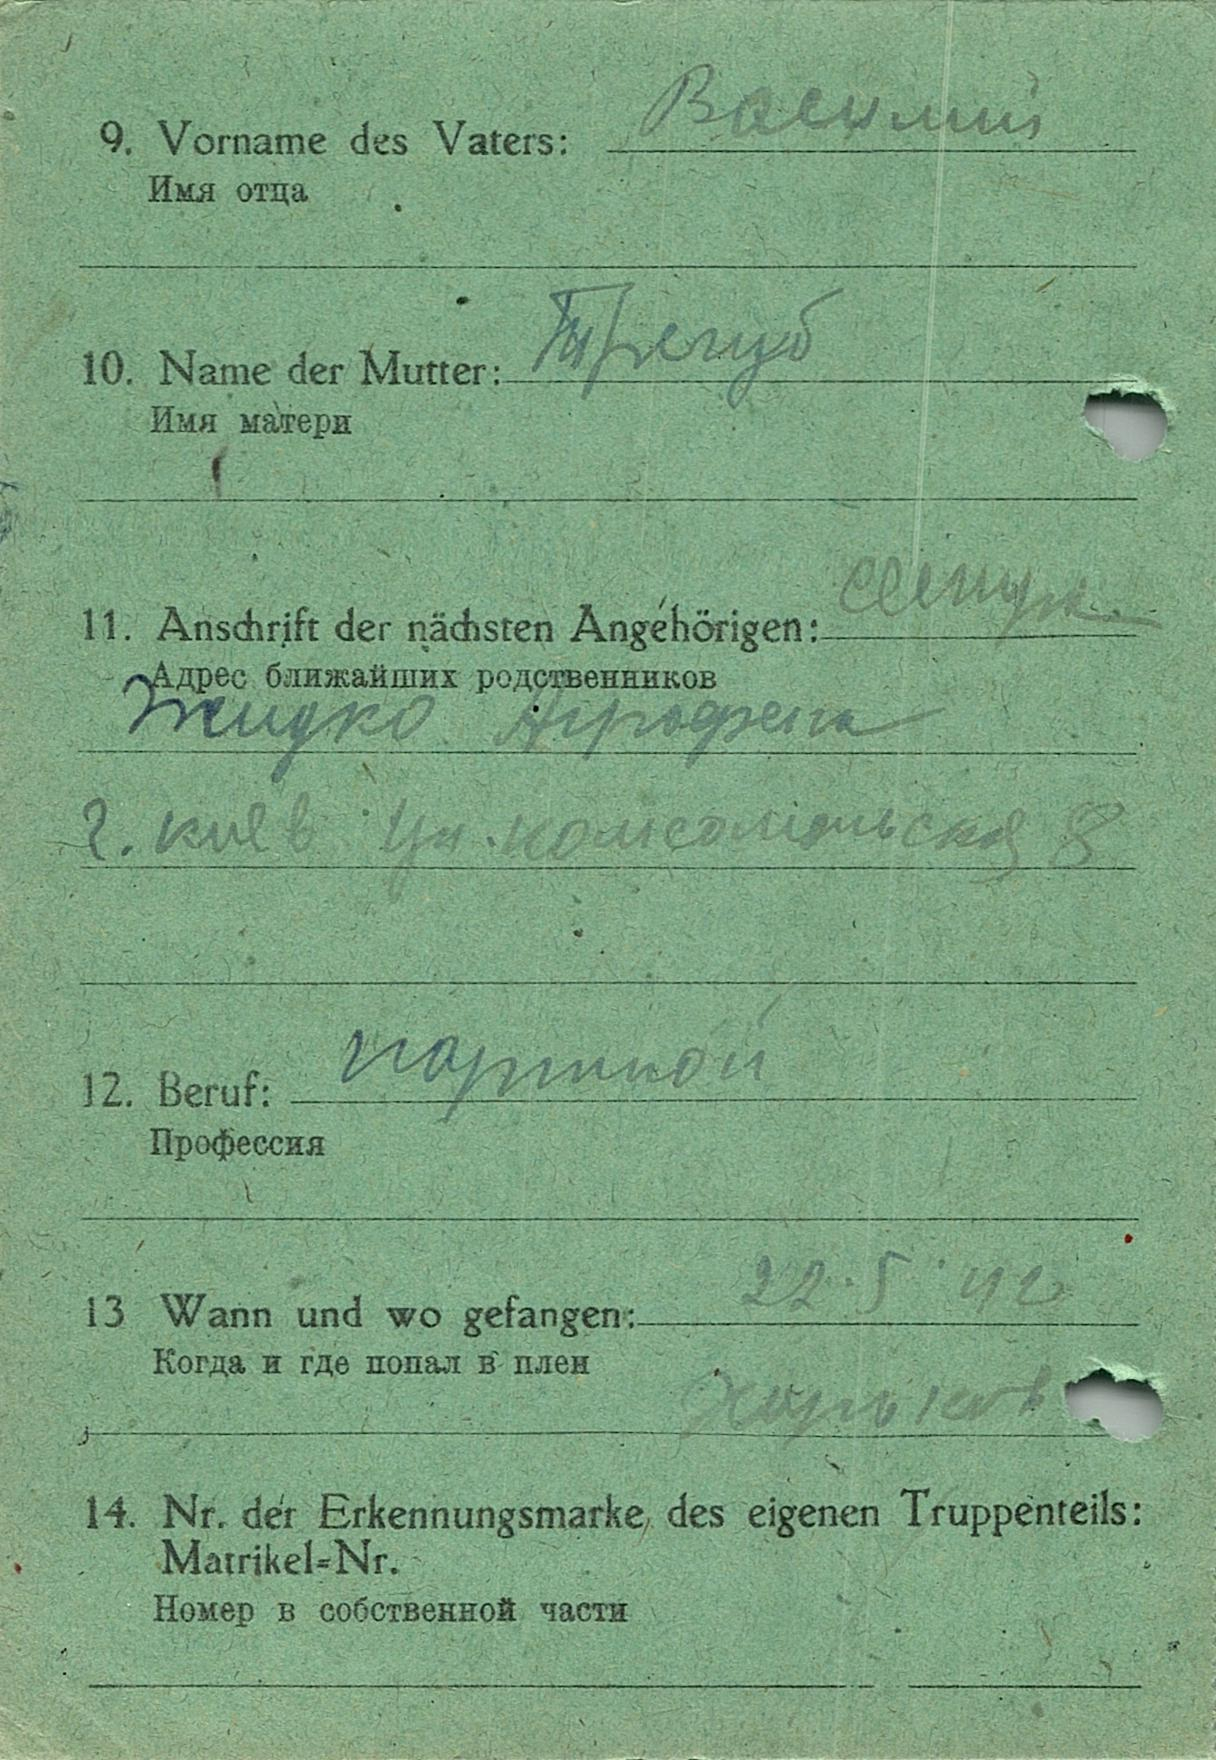 9. Vorname des Vaters: Василий
Имя отца
10. Name der Mutter: Трегуб
Имя матери
11. Anschrift der nächsten Angehörigen:
Адрес ближайших родственников
Жидко Агрофена
г. киев ул. комсомольская 8
12. Beruf: портной
Профессия
13 Wann und wo gefangen: 22.5.42
Когда и где попал в плен
Харьков
14. Nr. der Erkennungsmarke des eigenen Truppenteils:
Matrikel=Nr.
Номер в собственной части